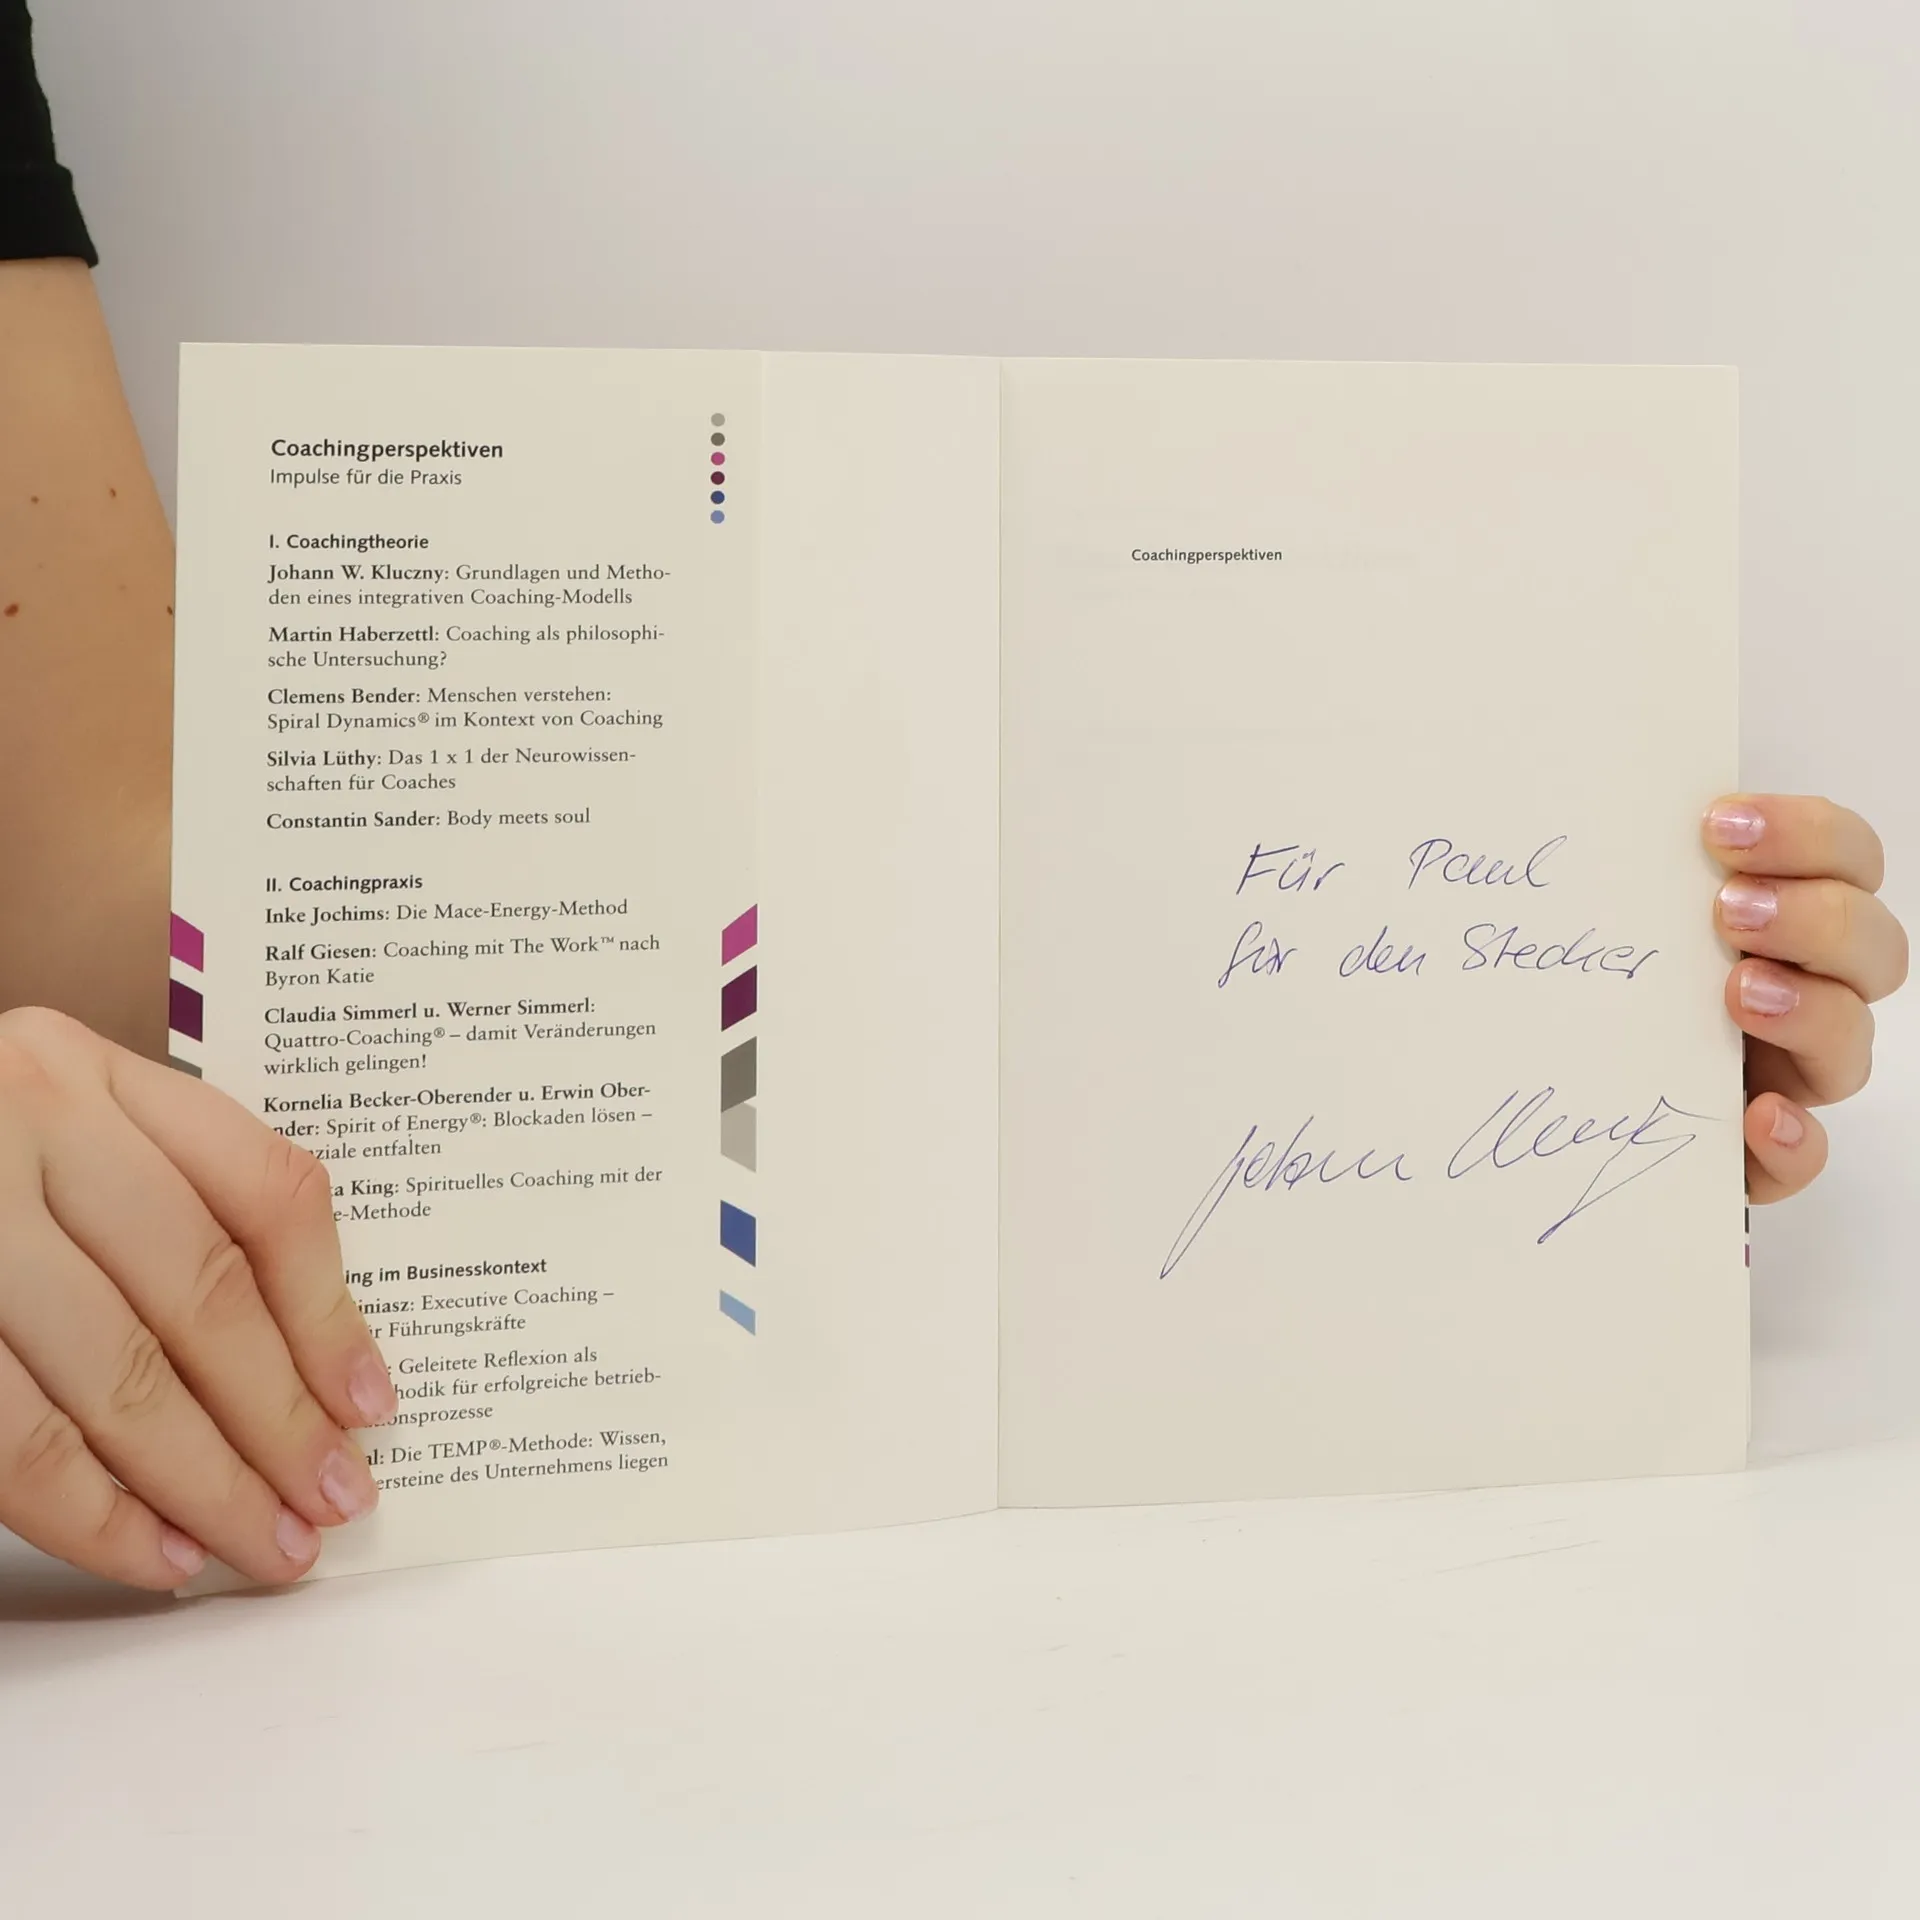 Coachingperspektiven
Impulse für die Praxis
I. Coachingtheorie
Johann W. Kluczny: Grundlagen und Metho-
den eines integrativen Coaching-Modells
Martin Haberzettl: Coaching als philosophi-
sche Untersuchung?
Clemens Bender: Menschen verstehen:
Spiral Dynamics® im Kontext von Coaching
Silvia Lüthy: Das 1 x 1 der Neurowissen-
schaften für Coaches
Constantin Sander: Body meets soul
II. Coachingpraxis
Inke Jochims: Die Mace-Energy-Method
Ralf Giesen: Coaching mit The Work™ nach
Byron Katie
Claudia Simmerl u. Werner Simmerl:
Quattro-Coaching® – damit Veränderungen
wirklich gelingen!
Kornelia Becker-Oberender u. Erwin Ober-
nder: Spirit of Energy®: Blockaden lösen –
ziale entfalten
a King: Spirituelles Coaching mit der
e-Methode
ing im Businesskontext
iniasz: Executive Coaching –
ir Führungskräfte
: Geleitete Reflexion als
hodik für erfolgreiche betrieb-
onsprozesse
al: Die TEMP®-Methode: Wissen,
ersteine des Unternehmens liegen
Coachingperspektiven
Für Paul
für den Stecker
Johann